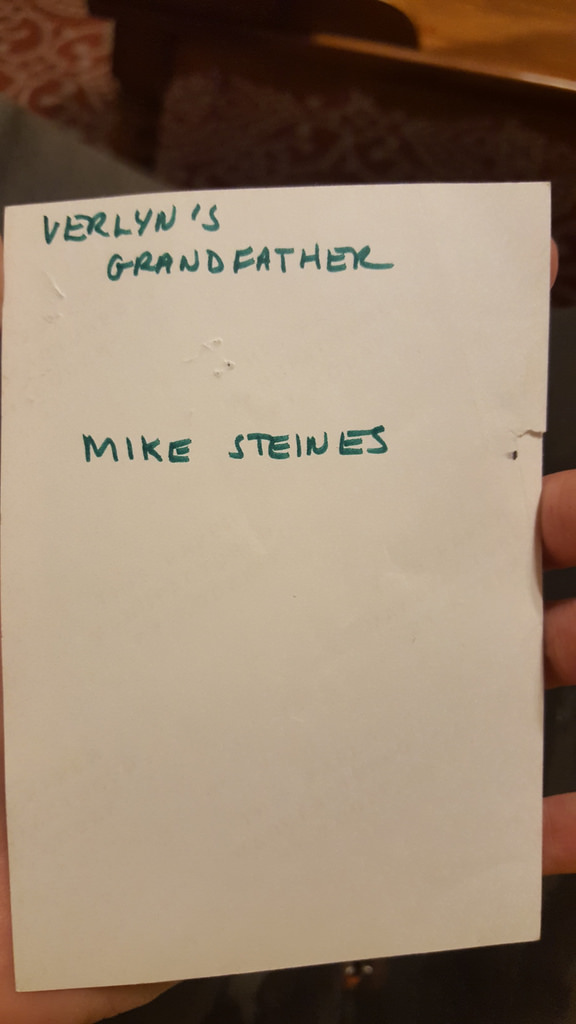 VERLYN'S
GRANDFATHER
MIKE STEINES